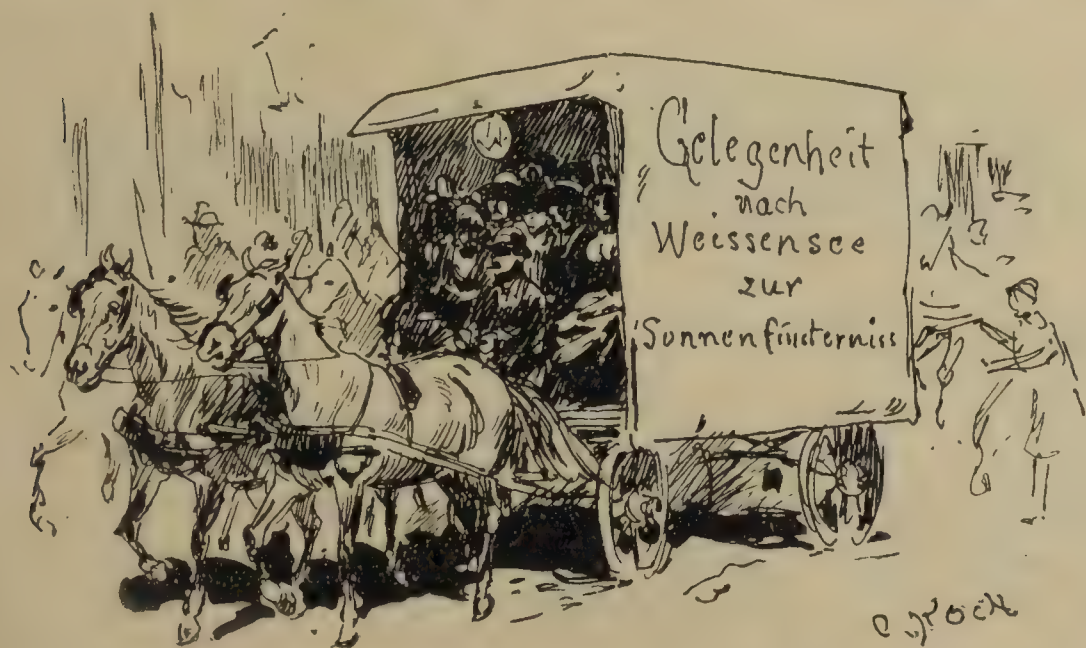 Gelegenheit
nach
Weissensee
zur
Sonnenfinsterniss